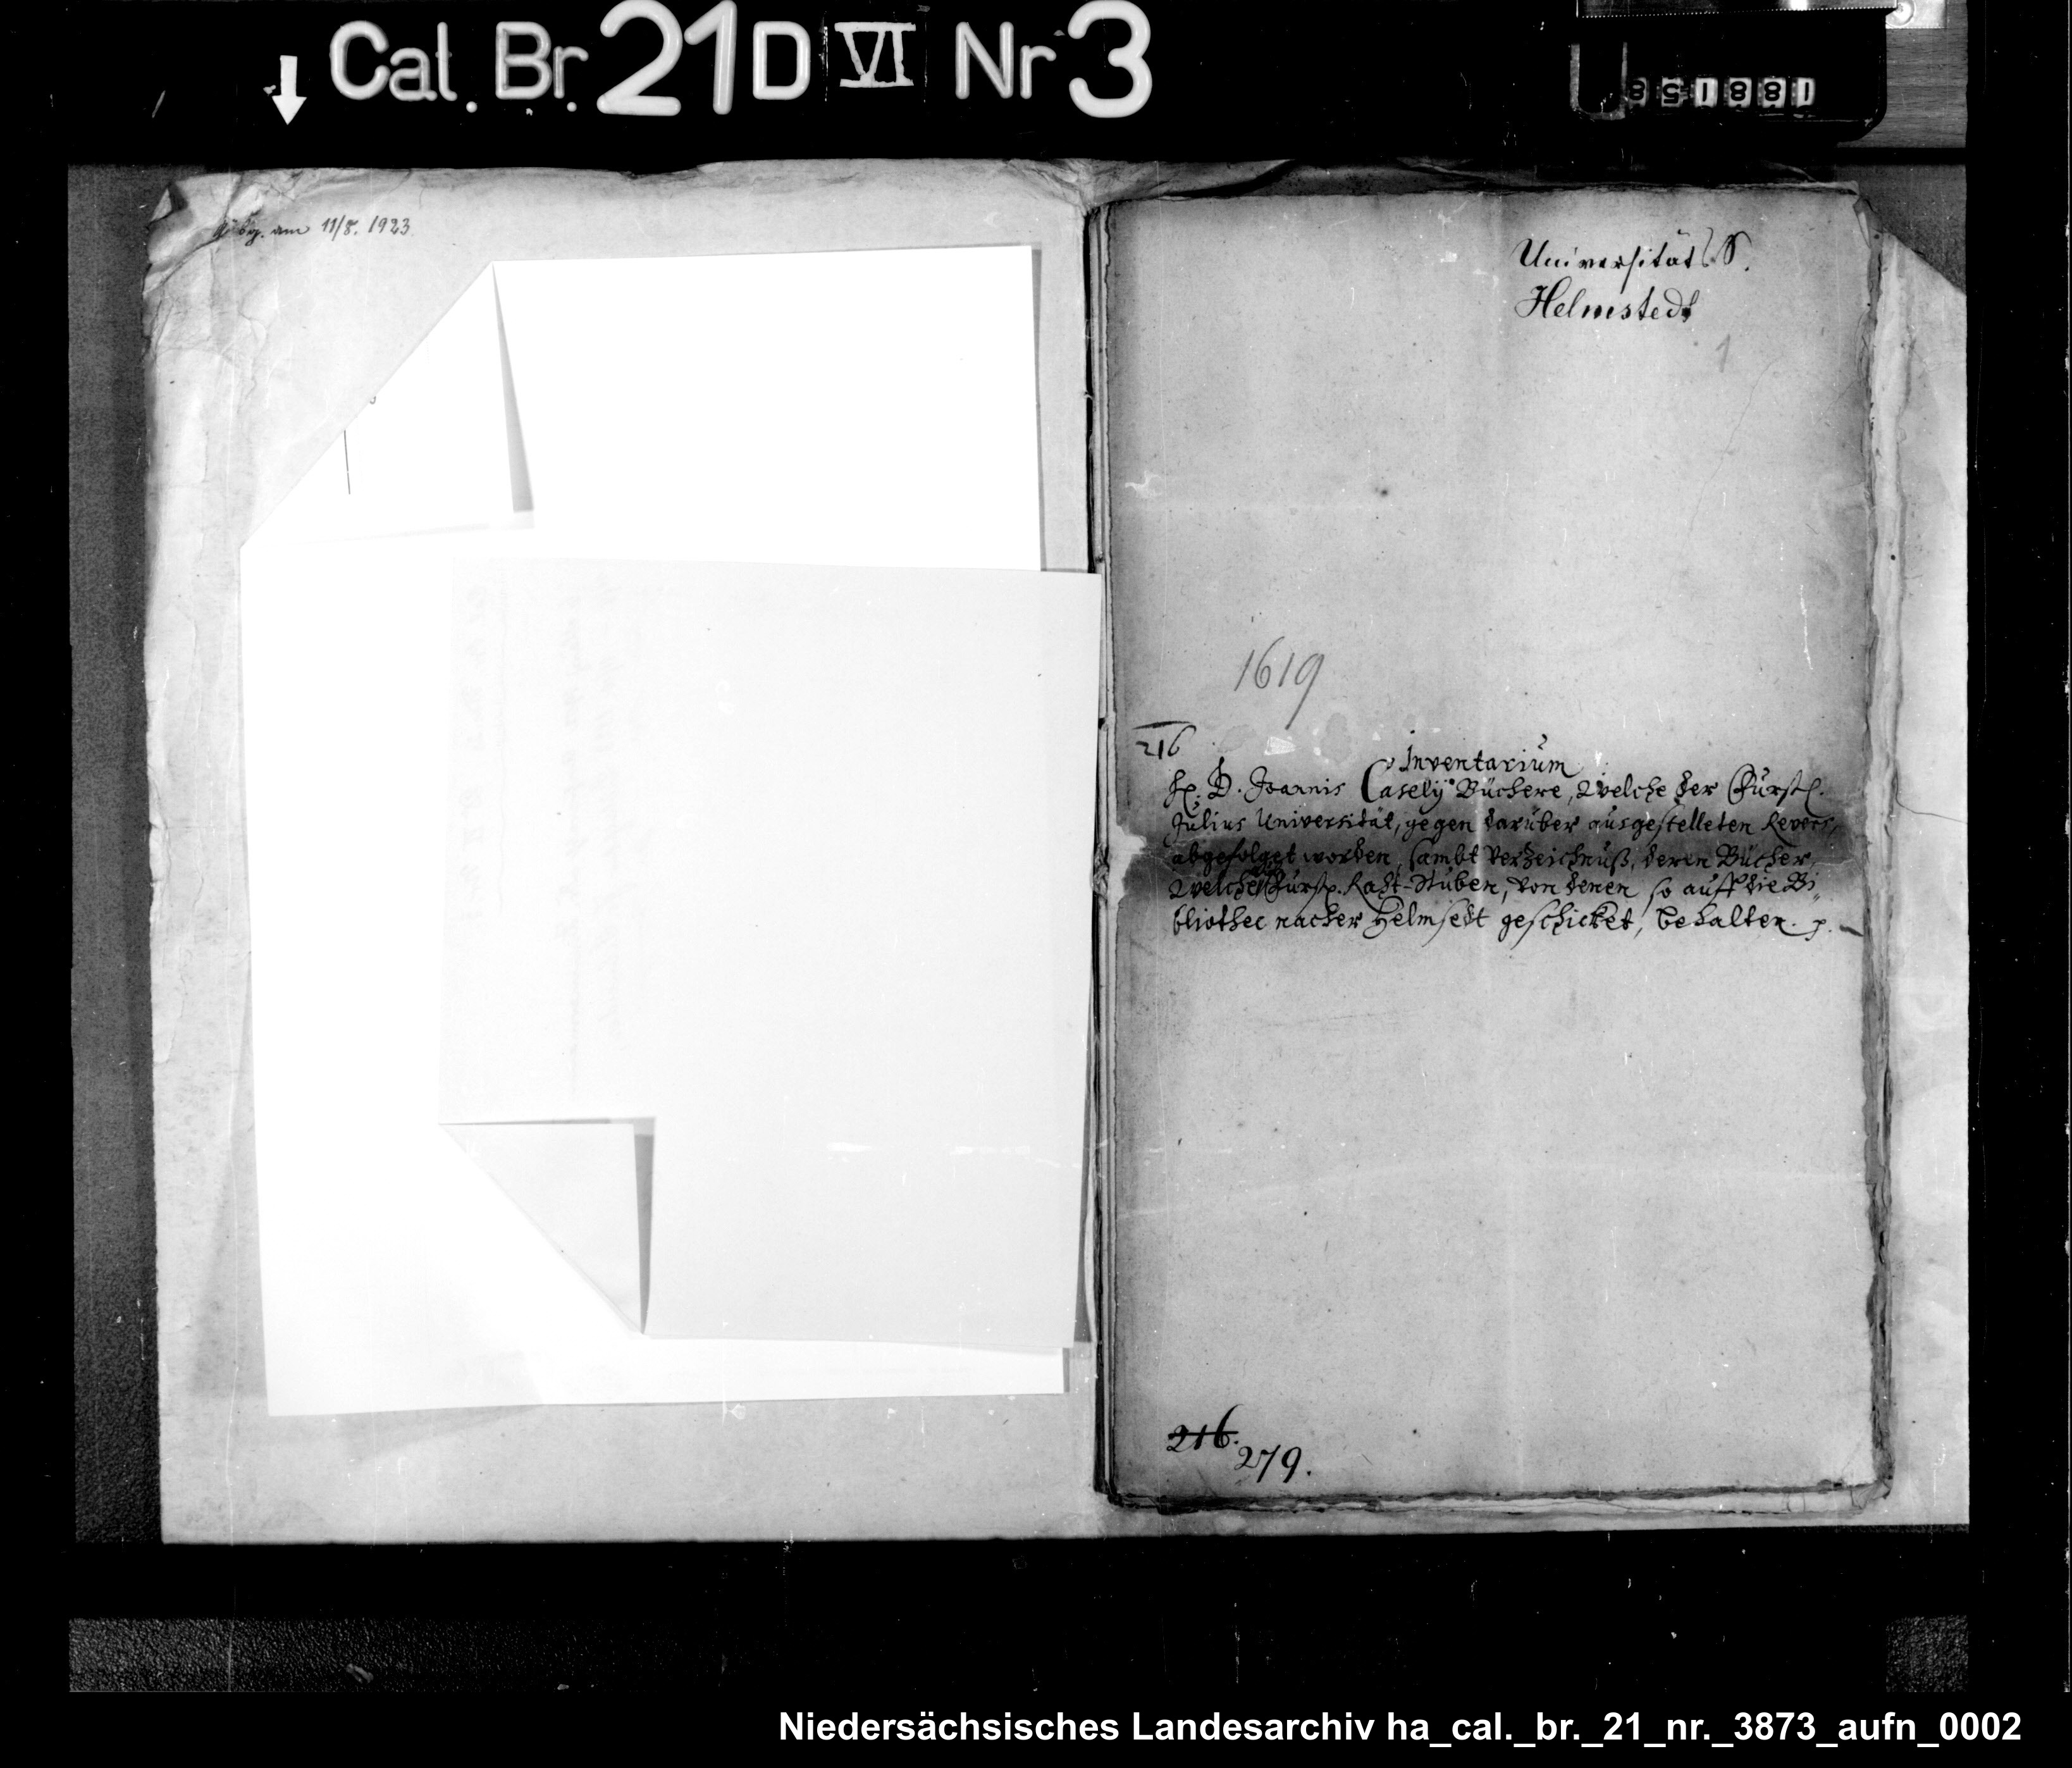 Cat. Br. 21 D VI Nr 3
188158
am 11/8. 1923
Universität
Helmstedt
1
1619
216
Inventarium
D. Joannis Caselÿ Büchere, Welche der Fürstl.
Julius Universität, gegen darüber ausgestelleten Revers,
abgefolget worden, sambt Verzeichnuß, deren Bücher,
Welche Fürstl. Raht-Stuben, von denen so auff die Bi
bliothec nacher Helmsedt geschicket, behalten.
216.
279.
Niedersächsisches Landesarchiv ha_cal._br._21_nr._3873_aufn_0002